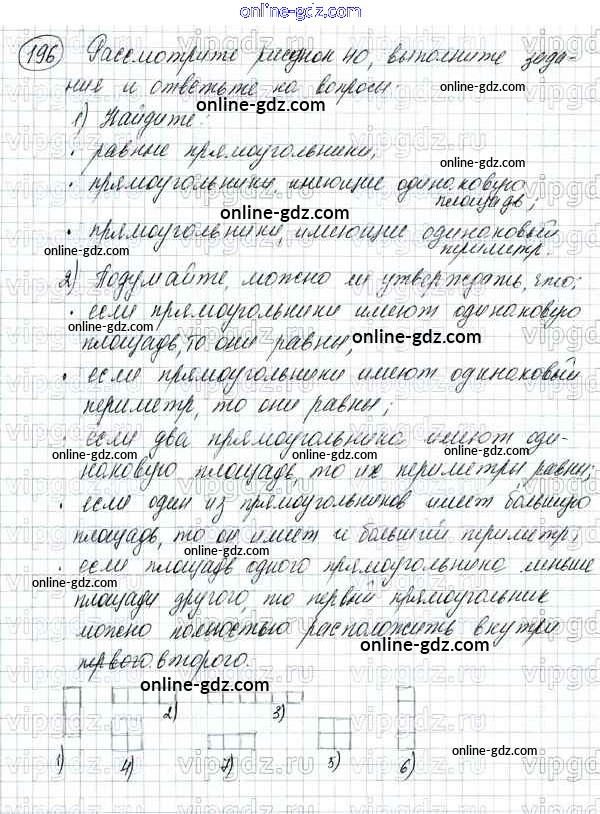 online-gdz.com
196 Рассмотрите рисунок 40, выполните зада-
ния и ответьте на вопросы:
online-gdz.com
1) Найдите:
online-gdz.com
· равные прямоугольники;
online-gdz.com
· прямоугольники, имеющие одинаковую
площадь;
online-gdz.com
· прямоугольники, имеющие одинаковый
периметр.
online-gdz.com
online-gdz.com
2) Подумайте, можно ли утверждать, что:
· если прямоугольники имеют одинаковую
online-gdz.com
площадь, то они равны;
online-gdz.com
· если прямоугольники имеют одинаковый
периметр, то они равны;
online-gdz.com
online-gdz.com
· если два прямоугольника имеют оди-
наковую площадь, то их периметры равны;
online-gdz.com
· если один из прямоугольников имеет большую
площадь, то он имеет и больший периметр;
online-gdz.com
· если площадь одного прямоугольника меньше
online-gdz.com
площади другого, то первый прямоугольник
online-gdz.com
можно полностью расположить внутри
первого второго.
online-gdz.com
online-gdz.com
2) 3)
1) 4) 7) 5) 6)
online-gdz.com
online-gdz.com